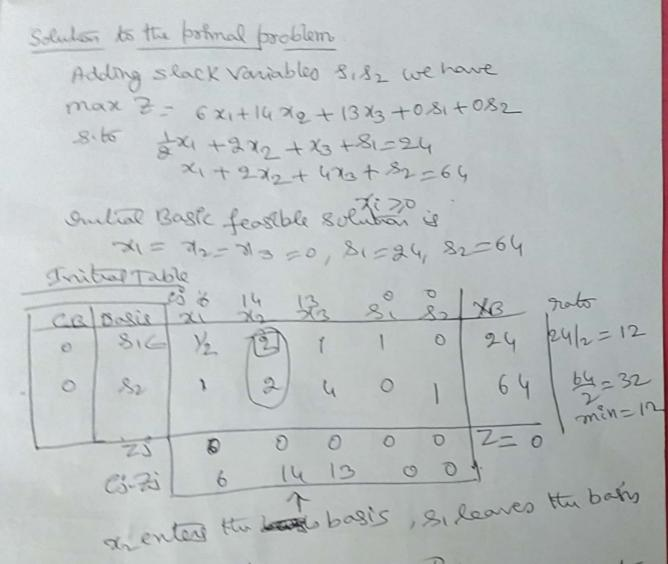 Solution to the primal problem
Adding slack variables s1 s2 we have
max Z = 6x1 + 14x2 + 13x3 + 0s1 + 0s2
s.to 1/2 x1 + 2x2 + x3 + s1 = 24
x1 + 2x2 + 4x3 + s2 = 64
xi ≥ 0
Initial Basic feasible solution is
x1 = x2 = x3 = 0, s1 = 24, s2 = 64
Initial Table
Cj 6 14 13 0 0
CB Basis x1 x2 x3 s1 s2 XB rato
0 s1 1/2 2 1 1 0 24 24/2 = 12
0 s2 1 2 4 0 1 64 64/2 = 32
min = 12
Zj 0 0 0 0 0 Z = 0
Cj-Zj 6 14 13 0 0
↑
x2 enters the basis, s1 leaves the basis